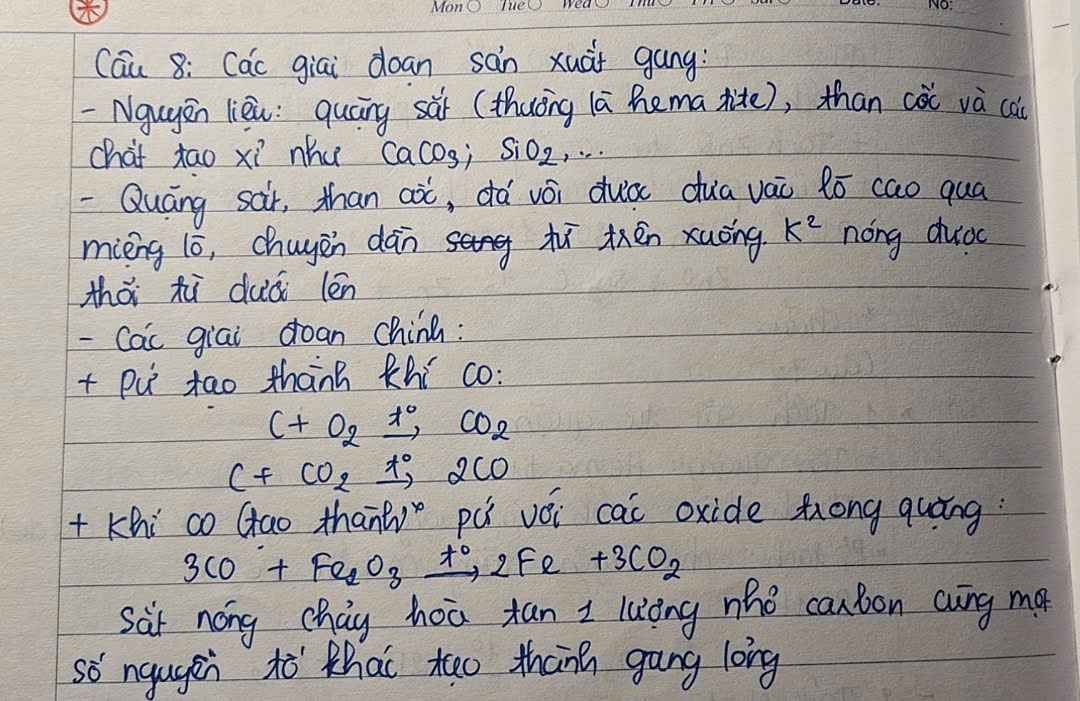 Mon Tue Wed Thu Fri Sat Date: No:
Câu 8: Các giai đoạn sản xuất gang:
- Nguyên liệu: quặng sắt (thường là hematite), than cốc và các
chất tạo xỉ như CaCO₃; SiO₂,...
- Quặng sắt, than cốc, đá vôi được đưa vào lò cao qua
miệng lò, chuyển dần sang từ trên xuống. K² nóng được
thổi từ dưới lên
- Các giai đoạn chính:
+ Pứ tạo thành khí CO:
C + O₂ t°→ CO₂
C + CO₂ t°→ 2CO
+ Khí CO (tạo thành) pứ với các oxide trong quặng:
3CO + Fe₂O₃ t°→ 2Fe + 3CO₂
Sắt nóng chảy hoà tan 1 lượng nhỏ carbon cùng một
số nguyên tố khác tạo thành gang lỏng